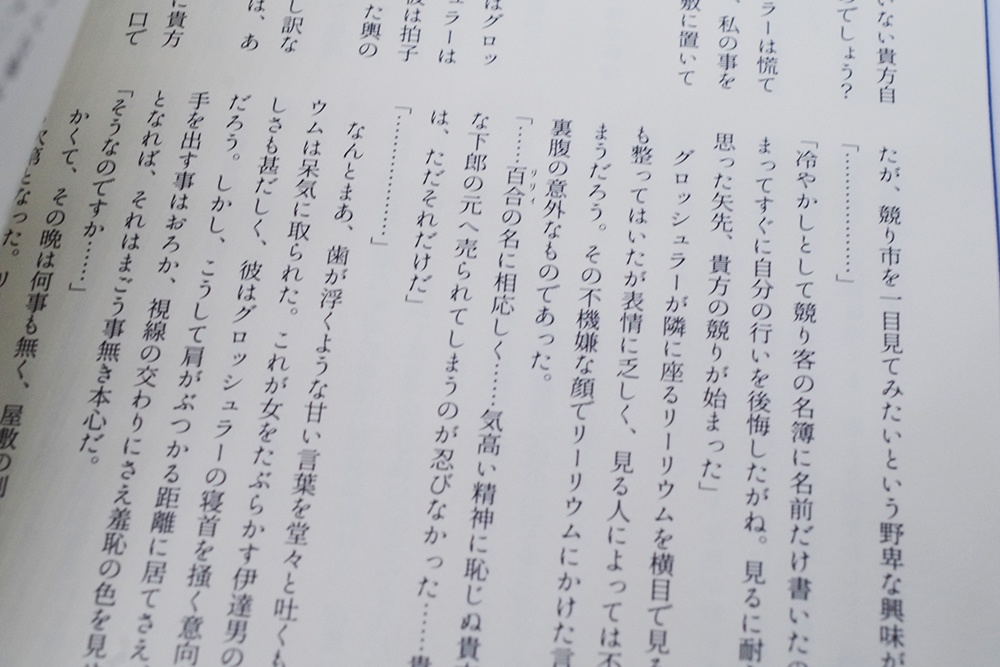 いない貴方自
のでしょう？
ラーは慌て
、私の事を
敷に置いて
はグロッ
ュラーは
彼は拍子
た輿の
し訳な
は、あ
に貴方
口で
たが、競り市を一目見てみたいという野卑な興味が
「…………」
「冷やかしとして競り客の名簿に名前だけ書いたの
まってすぐに自分の行いを後悔したがね。見るに耐
思った矢先、貴方の競りが始まった」
グロッシュラーが隣に座るリーリウムを横目で見
も整ってはいたが表情に乏しく、見る人によっては不
まうだろう。その不機嫌な顔でリーリウムにかけた言
裏腹の意外なものであった。
「……百合の名に相応しく……気高い精神に恥じぬ貴方
リリィ
な下郎の元へ売られてしまうのが忍びなかった……貴
は、ただそれだけだ」
「……………」
なんとまあ、歯が浮くような甘い言葉を堂々と吐くも
ウムは呆気に取られた。これが女をたぶらかす伊達男の
しさも甚だしく、彼はグロッシュラーの寝首を掻く意向
だろう。しかし、こうして肩がぶつかる距離に居てさえ
手を出す事はおろか、視線の交わりにさえ羞恥の色を見
となれば、それはまごう事無き本心だ。
「そうなのですか……」
かくて、その晩は何事も無く、屋敷の別
次第となった。リ